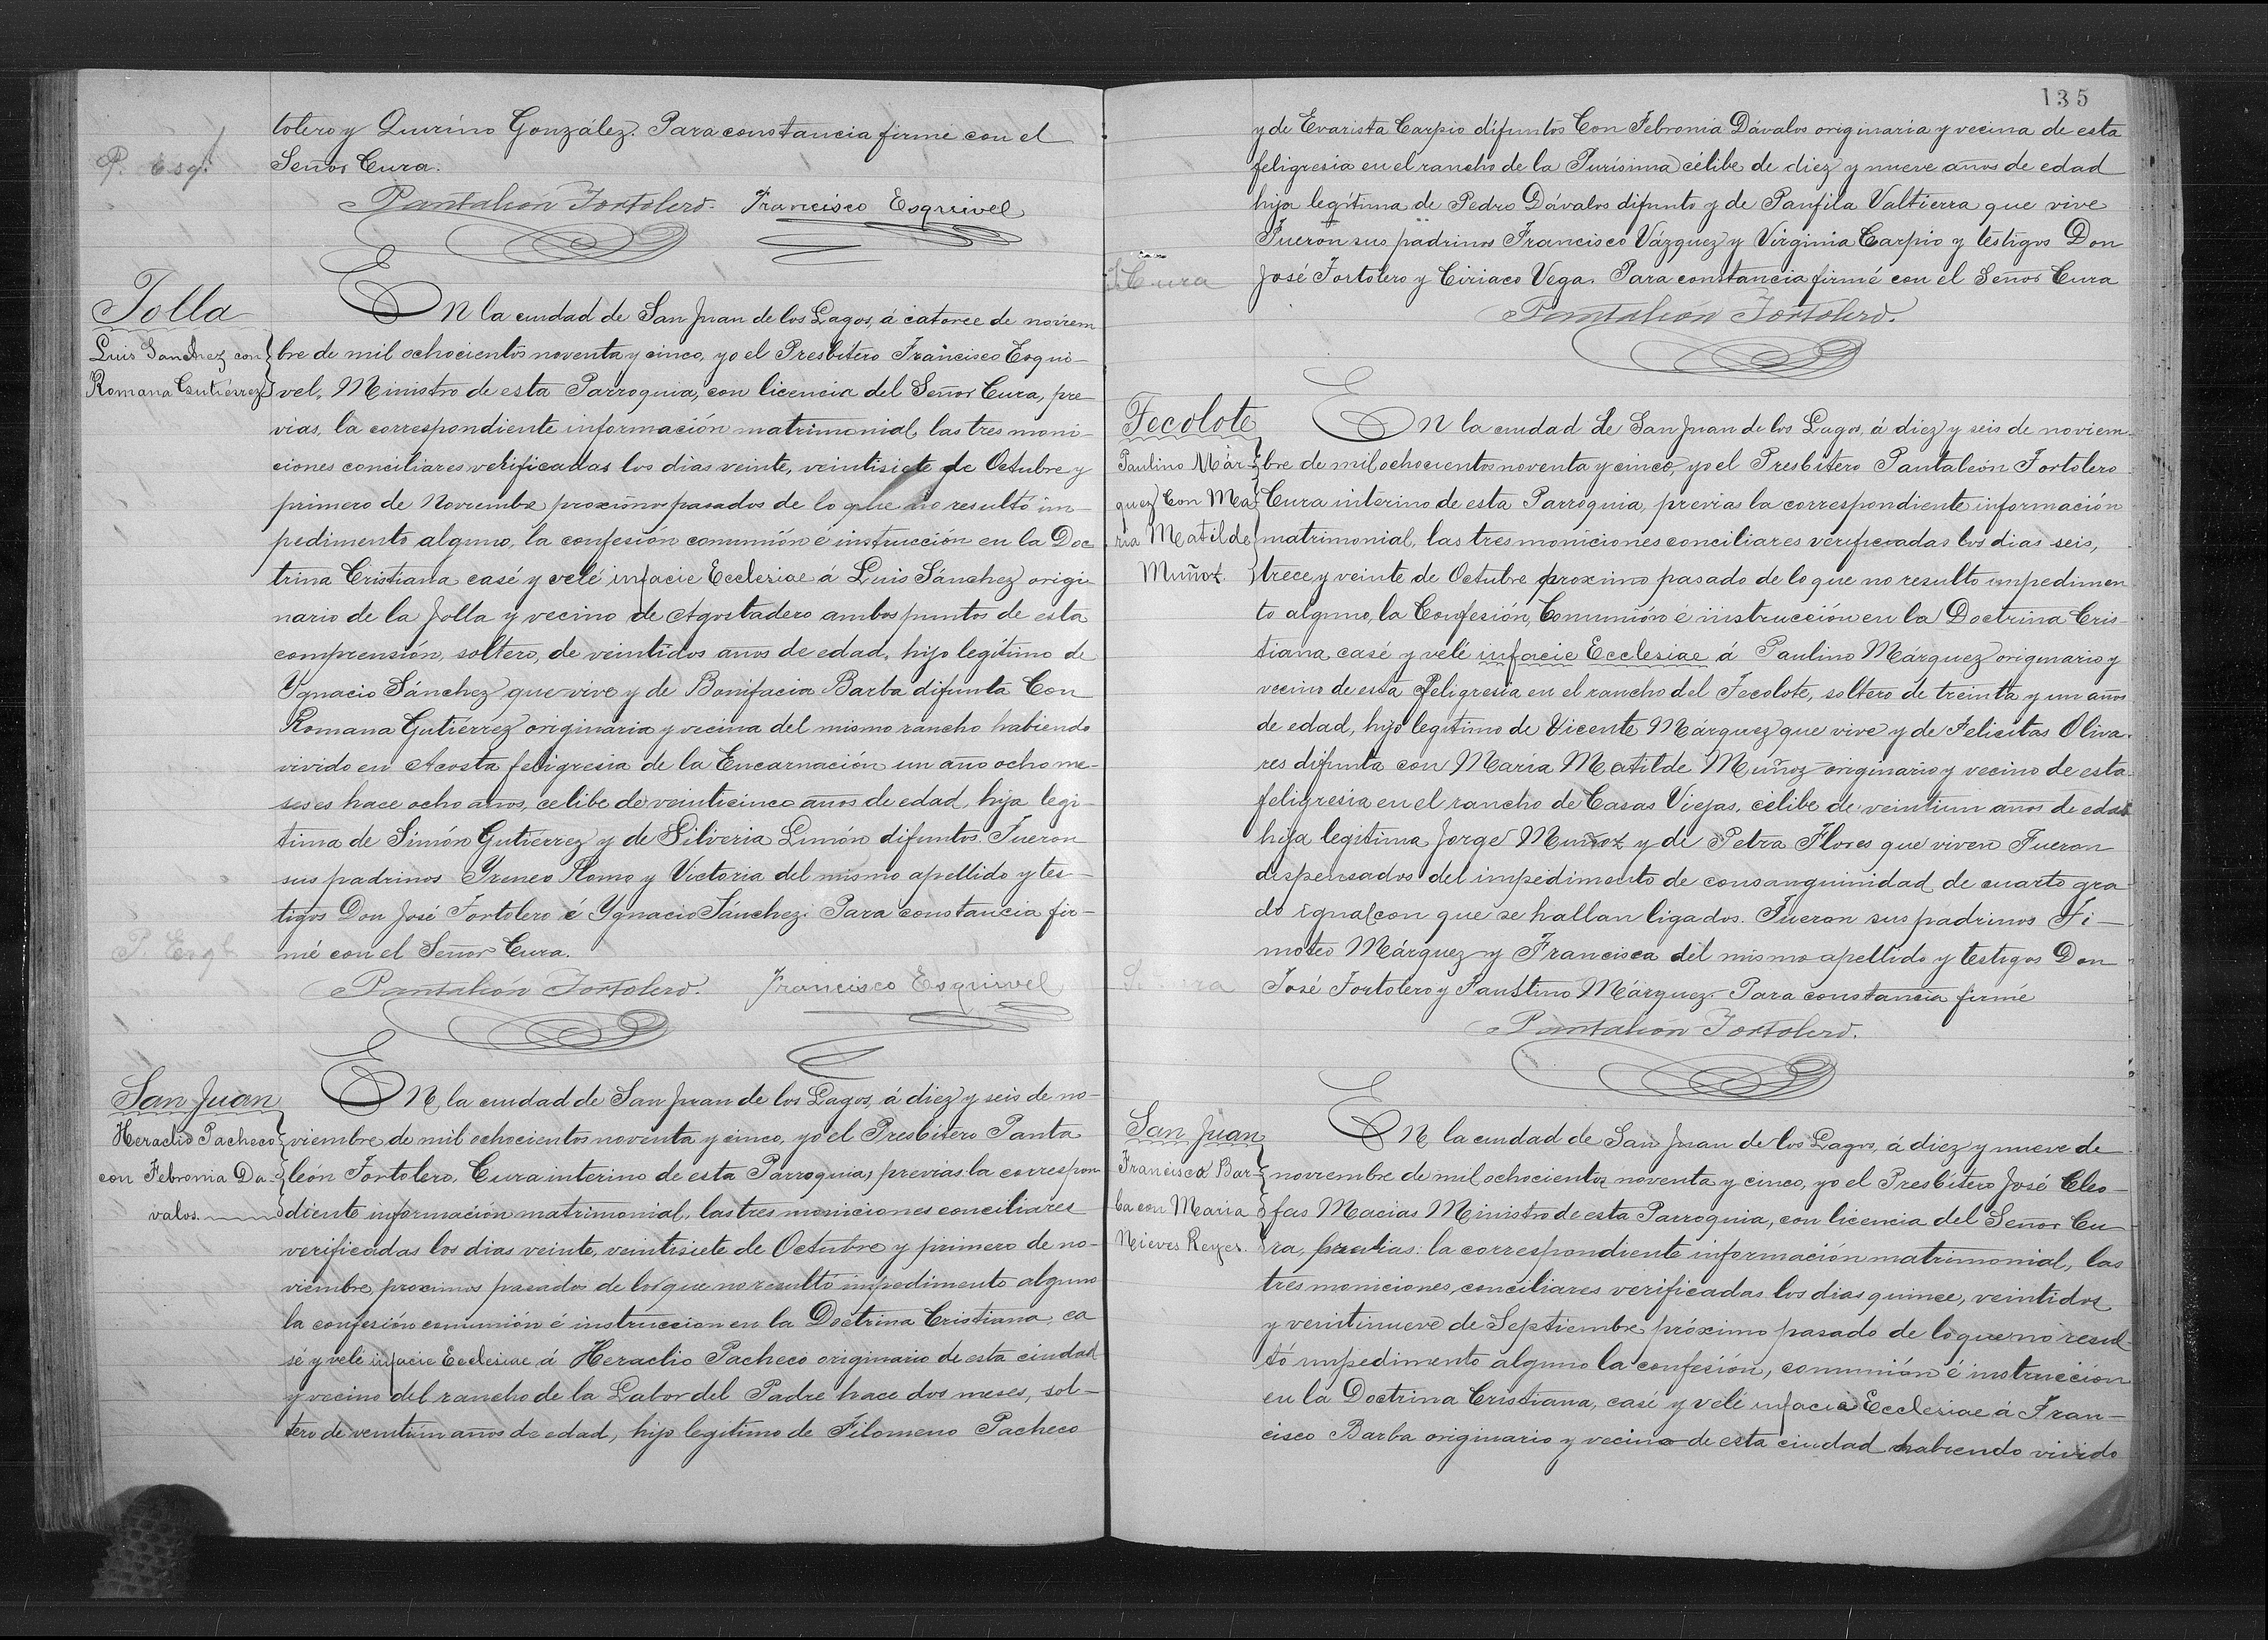 tolero y Quirino González. Para constancia firmé con el
P. Esq.
Señor Cura.
Pantaleón Tortolero. Francisco Esquivel
Jolla
Luis Sanchez con
Romana Gutierrez
En la ciudad de San Juan de los Lagos, á catorce de noviem
bre de mil ochocientos noventa y cinco, yo el Presbítero Francisco Esqui-
vel, Ministro de esta Parroquia, con licencia del Señor Cura, pre
vias, la correspondiente información matrimonial, las tres moni-
ciones conciliares verificadas los dias veinte, veintisiete de Octubre y
primero de Noviembre proximos pasados de lo que no resultó im-
pedimento alguno, la confesión comunión é instrucción en la Doc
trina Cristiana casé y velé infacie Ecclesiae á Luis Sánchez origi-
nario de la Jolla y vecino de Agostadero ambos puntos de esta
comprensión, soltero, de veintidos años de edad, hijo legítimo de
Ygnacio Sánchez que vive y de Bonifacia Barba difunta Con
Romana Gutiérrez originaria y vecina del mismo rancho habiendo
vivido en Acosta feligresia de la Encarnación un año ocho me-
ses es hace ocho años, celibe de veinticinco años de edad, hija legi-
tima de Simón Gutiérrez y de Silveria Limón difuntos. Fueron
sus padrinos Yreneo Romo y Victoria del mismo apellido y tes-
tigos Don José Tortolero é Ygnacio Sánchez. Para constancia fir-
P. Esql.
mé con el Señor Cura.
Pantaleón Tortolero. Francisco Esquivel
San Juan
Heraclio Pacheco
con Febronia Da-
valos.
En la ciudad de San Juan de los Lagos, á diez y seis de no-
viembre de mil ochocientos noventa y cinco, yo el Presbítero Panta
león Tortolero, Cura interino de esta Parroquia, previas la correspon
diente información matrimonial, las tres moniciones conciliares
verificadas los dias veinte, veintisiete de Octubre y primero de no-
viembre proximos pasados de lo que no resultó impedimento alguno
la confesión comunión é instruccion en la Doctrina Cristiana, ca
sé y velé infacie Ecclesiae á Heraclio Pacheco originario de esta ciudad
y vecino del rancho de la Labor del Padre hace dos meses, sol-
tero de veintiún años de edad, hijo legitimo de Filomeno Pacheco
135
y de Evarista Carpio difuntos Con Febronia Dávalos originaria y vecina de esta
feligresia en el rancho de la Purísima célibe de diez y nueve años de edad
hija legítima de Pedro Dávalos difunto y de Panfila Valtierra que vive
Fueron sus padrinos Francisco Vázquez y Virginia Carpio y testigos Don
Cura
José Tortolero y Ciriaco Vega. Para constancia firmé con el Señor Cura
Pantaleón Tortolero.
Tecolote
Paulino Már-
quez Con Ma
ria Matilde
Muñoz.
En la ciudad de San Juan de los Lagos, á diez y seis de noviem-
bre de mil ochocientos noventa y cinco, yo el Presbítero Pantaleón Tortolero
Cura interino de esta Parroquia, previas la correspondiente información
matrimonial, las tres moniciones conciliares verificadas los dias seis,
trece y veinte de Octubre proximo pasado de lo que no resulto impedimen
to alguno, la Confesión, Comunión é instrucción en la Doctrina Cris-
tiana, casé y velé infacie Ecclesiae á Paulino Márquez originario y
vecino de esta feligresia en el rancho del Tecolote, soltero de treinta y un años
de edad, hijo legitimo de Vicente Márquez que vive y de Felicitas Oliva-
res difunta con María Matilde Muñoz originario y vecino de esta
feligresia en el rancho de Casas Viejas, célibe de veintiun años de edad
hija legítima Jorge Muñoz y de Petra Flores que viven Fueron
dispensados del impedimento de consanguinidad de cuarto gra
do igual con que se hallan ligados. Fueron sus padrinos Ti-
moteo Márquez y Francisca del mismo apellido y testigos Don
José Tortolero y Faustino Márquez. Para constancia firmé
Pantaleón Tortolero.
San Juan
Francisco Bar-
ba con Maria
Nieves Reyes.
En la ciudad de San Juan de los Lagos, á diez y nueve de
noviembre de mil ochocientos noventa y cinco, yo el Presbítero José Cleo-
fas Macias Ministro de esta Parroquia, con licencia del Señor Cu
ra, previas: la correspondiente información matrimonial, las
tres moniciones conciliares verificadas los dias quince, veintidos
y veintinueve de Septiembre próximo pasado de lo que no resul
tó impedimento alguno la confesión, comunión é instrucción
en la Doctrina Cristiana, casé y velé infacie Ecclesiae á Fran-
cisco Barba originario y vecino de esta ciudad habiendo vivido